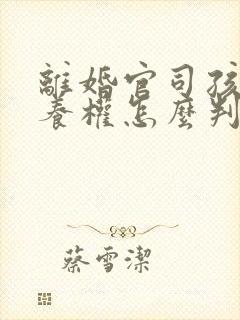 離婚官司孩
養權怎麼判
蔡雪潔